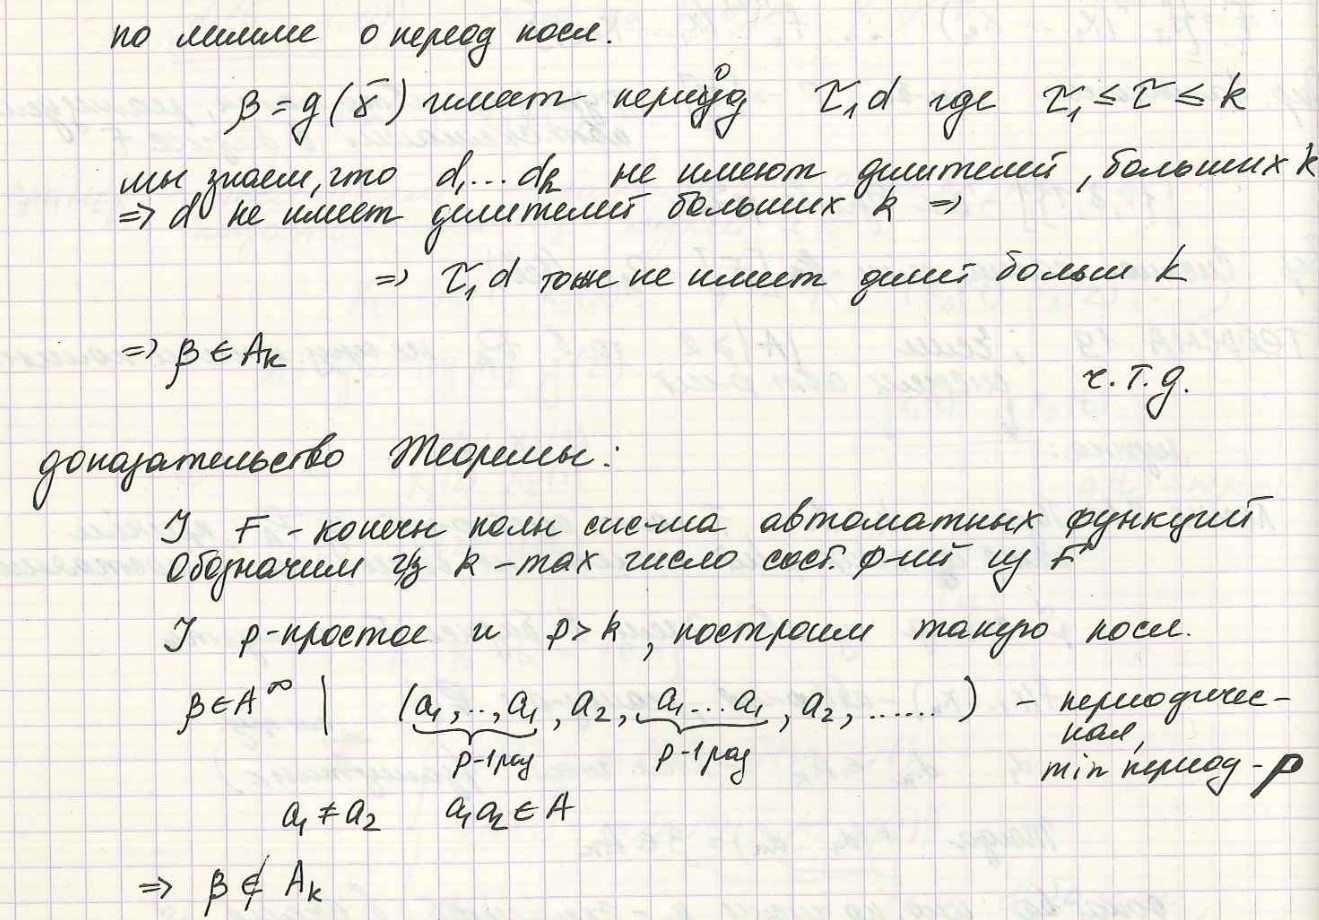 по лемме о период посл.
β = g(γ̄) имеет период τ₁d где τ₁ ≤ τ ≤ k
мы знаем, что d₁...dₖ не имеют делителей, больших k
⇒ d не имеет делителей больших k ⇒
⇒ τ₁d тоже не имеет делит больш k
⇒ β ∈ Aₖ
ч.т.д.
доказательство Теоремы:
] F - конечн полн сис-ма автоматных функций
Обозначим ч/з k - max число сост. ф-ий из F
] p-простое и p > k, построим такую посл.
β ∈ A^∞ | (a₁,..,a₁, a₂, a₁...a₁, a₂, ......) - периодичес-
ная,
p-1 раз p-1 раз
min период - p
a₁ ≠ a₂ a₁a₂ ∈ A
⇒ β ∉ Aₖ